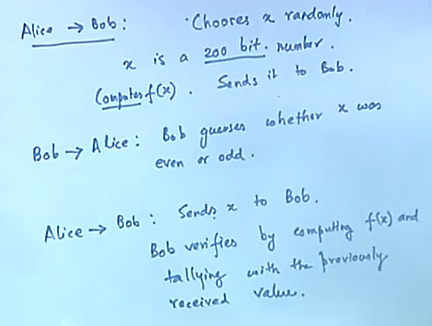 Alice → Bob : Chooses x randomly.
x is a 200 bit. number.
Computes f(x). Sends it to Bob.
Bob → Alice : Bob guesses whether x was
even or odd.
Alice → Bob : Sends x to Bob.
Bob verifies by computing f(x) and
tallying with the previously
received value.